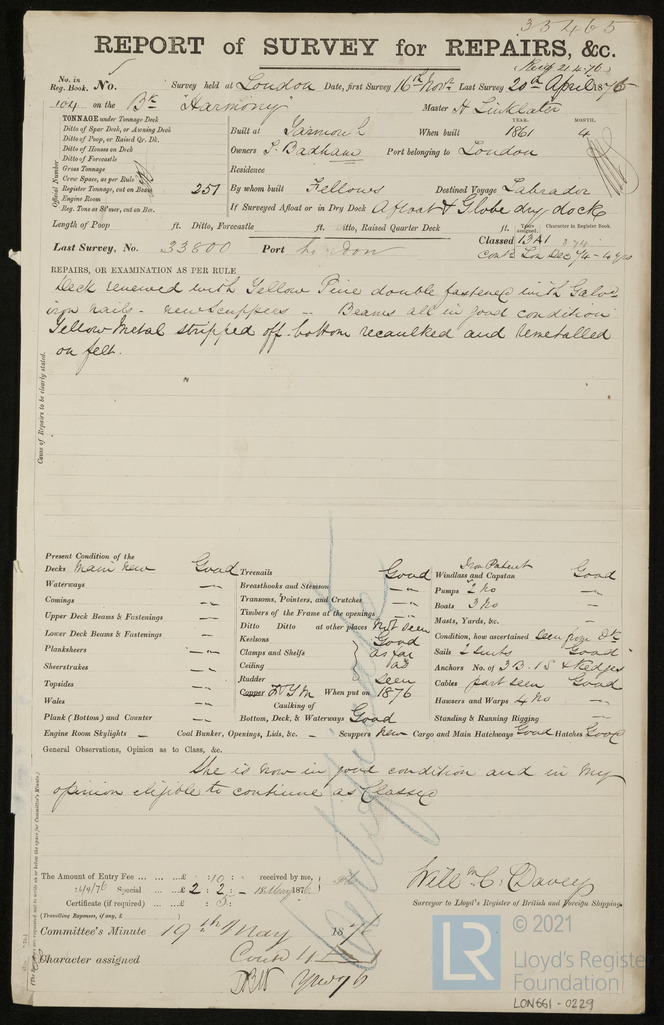 33465
REPORT of SURVEY for REPAIRS, &c.
21.4.76
No. in Reg. Book. No. Survey held at London Date, first Survey 16th Novr Last Survey 20th April 1876
104 on the Bk "Harmony" Master H Linklater
TONNAGE under Tonnage Deck
Ditto of Spar Deck, or Awning Deck
Ditto of Poop, or Raised Qr. Dk.
Ditto of Houses on Deck
Ditto of Forecastle
Gross Tonnage
Crew Space, as per Rule
Register Tonnage, cut on Beam 251
Engine Room
Reg. Tons as St'mer, cut on Bm.
Official Number
Built at Yarmouth When built YEAR. 1861 MONTH. 4
Owners J. Badham Port belonging to London
Residence
By whom built Fellows Destined Voyage Labrador
If Surveyed Afloat or in Dry Dock Afloat & Globe dry dock
Length of Poop ft. Ditto, Forecastle ft. Ditto, Raised Quarter Deck ft. Years assigned. Character in Register Book.
Last Survey, No. 33800 Port London Classed 13A1 2.74
contd Lon Dec 74 - 4 yrs
REPAIRS, OR EXAMINATION AS PER RULE
Deck renewed with Yellow Pine double fastened with Galvd
iron nails - new Scuppers - Beams all in good condition
Yellow Metal stripped off bottom recaulked and Remetalled
on felt.
Cause of Repairs to be clearly stated.
Present Condition of the
Decks Main New Good
Waterways "
Comings "
Upper Deck Beams & Fastenings "
Lower Deck Beams & Fastenings "
Planksheers "
Sheerstrakes "
Topsides "
Wales "
Plank (Bottom) and Counter "
Treenails Good
Breasthooks and Stemson "
Transoms, Pointers, and Crutches "
Timbers of the Frame at the openings "
Ditto Ditto at other places Not Seen
Keelsons Good
Clamps and Shelfs as far
Ceiling as
Rudder seen
Copper F Y M When put on 1876
Caulking of
Bottom, Deck, & Waterways Good
Iron Patent
Windlass and Capstan Good
Pumps 2 No "
Boats 3 No "
Masts, Yards, &c. "
Condition, how ascertained Seen from Dk
Sails 2 Suits Good
Anchors No. of 3 B. 1 S & Kedges
Cables part seen Good
Hawsers and Warps 4 No "
Standing & Running Rigging "
Engine Room Skylights - Coal Bunker, Openings, Lids, &c. - Scuppers New Cargo and Main Hatchways Good Hatches Good
General Observations, Opinion as to Class, &c.
She is now in good condition and in my
opinion eligible to continue as Classed
The Amount of Entry Fee ... £ : 10 : received by me,
Special ... £ 2 : 2 : - 18 May 1876
Certificate (if required) ... £ : 5 :
(Travelling Expenses, if any, £ )
Willm C. Davey
Surveyor to Lloyd's Register of British and Foreign Shipping.
Committee's Minute 19th May 1876
Character assigned
© 2021
LR
Lloyd's Register
Foundation
LON661-0229